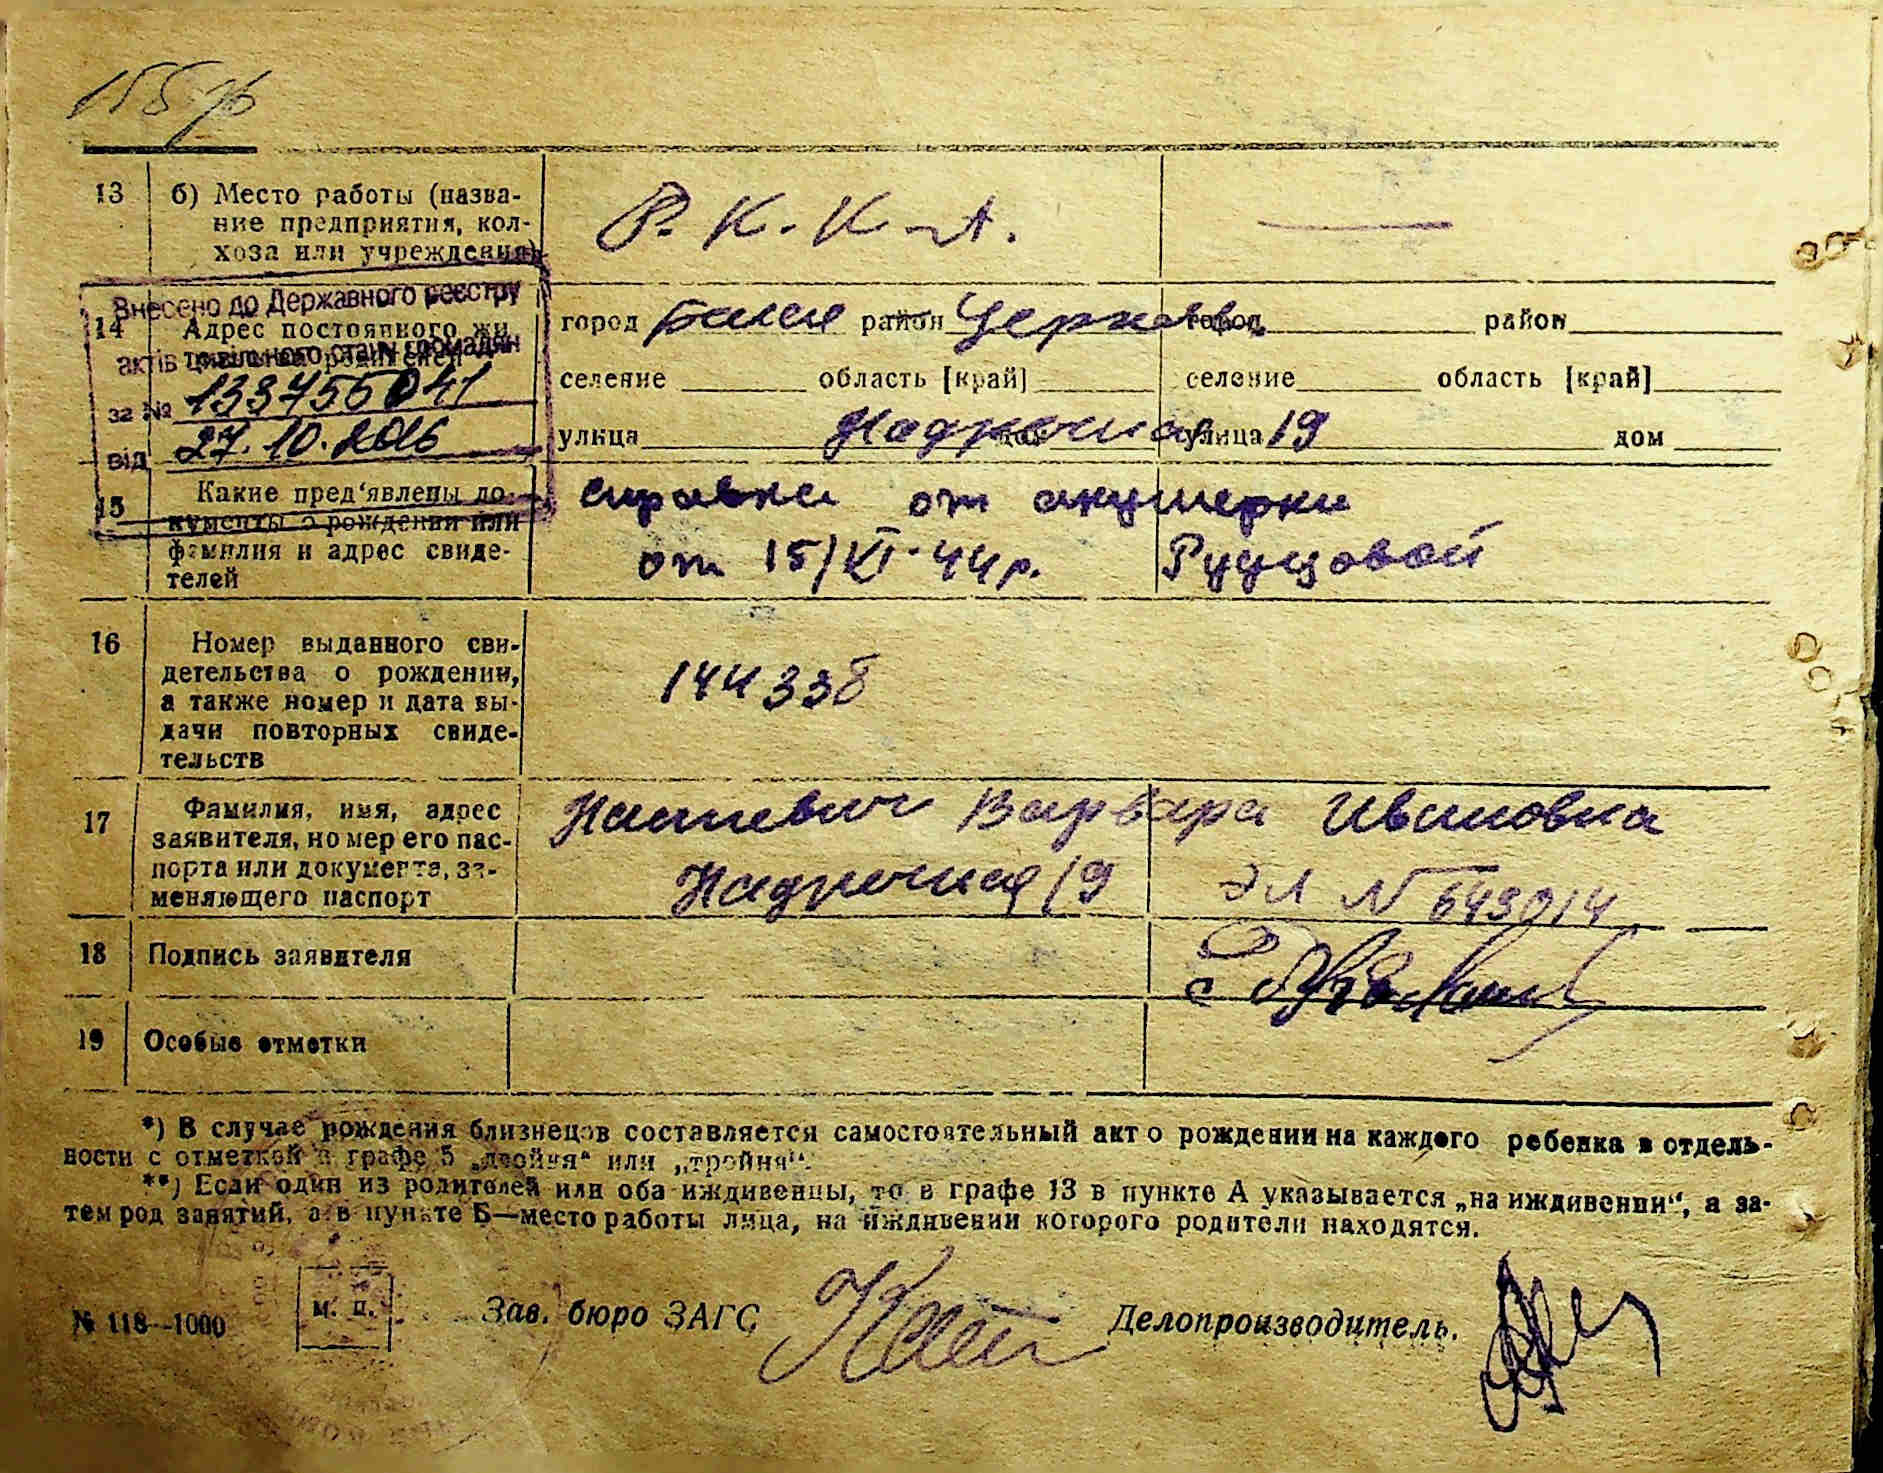 155
13 б) Место работы (назва-
ние предприятия, кол-
хоза или учреждения)
Р. К. К. А.
Внесено до Державного реєстру
актів цивільного стану громадян
за № 133756041
від 27.10.2016
14 Адрес постоянного жи
город Белая район Церковь город район
селение область [край] селение область [край]
улица Надречная улица 19 дом
15 Какие пред'явлены до-
кументы о рождении или
фамилия и адрес свиде-
телей
справка от акушерки
от 15/VI-44 р.
16 Номер выданного сви-
детельства о рождении,
а также номер и дата вы-
дачи повторных свиде-
тельств
144338
17 Фамилия, имя, адрес
заявителя, номер его пас-
порта или документа, за-
меняющего паспорт
Варвара Ивановна
Надречная 19 ЭЛ № 649014
18 Подпись заявителя
19 Особые отметки
*) В случае рождения близнецов составляется самостоятельный акт о рождении на каждого ребенка в отдель-
ности с отметкой в графе 5 „двойня“ или „тройня“.
**) Если один из родителей или оба иждивенцы, то в графе 13 в пункте А указывается „на иждивении“, а за-
тем род занятий, а в пункте Б—место работы лица, на иждивении которого родители находятся.
№ 118—1000 м. п. Зав. бюро ЗАГС Делопроизводитель.